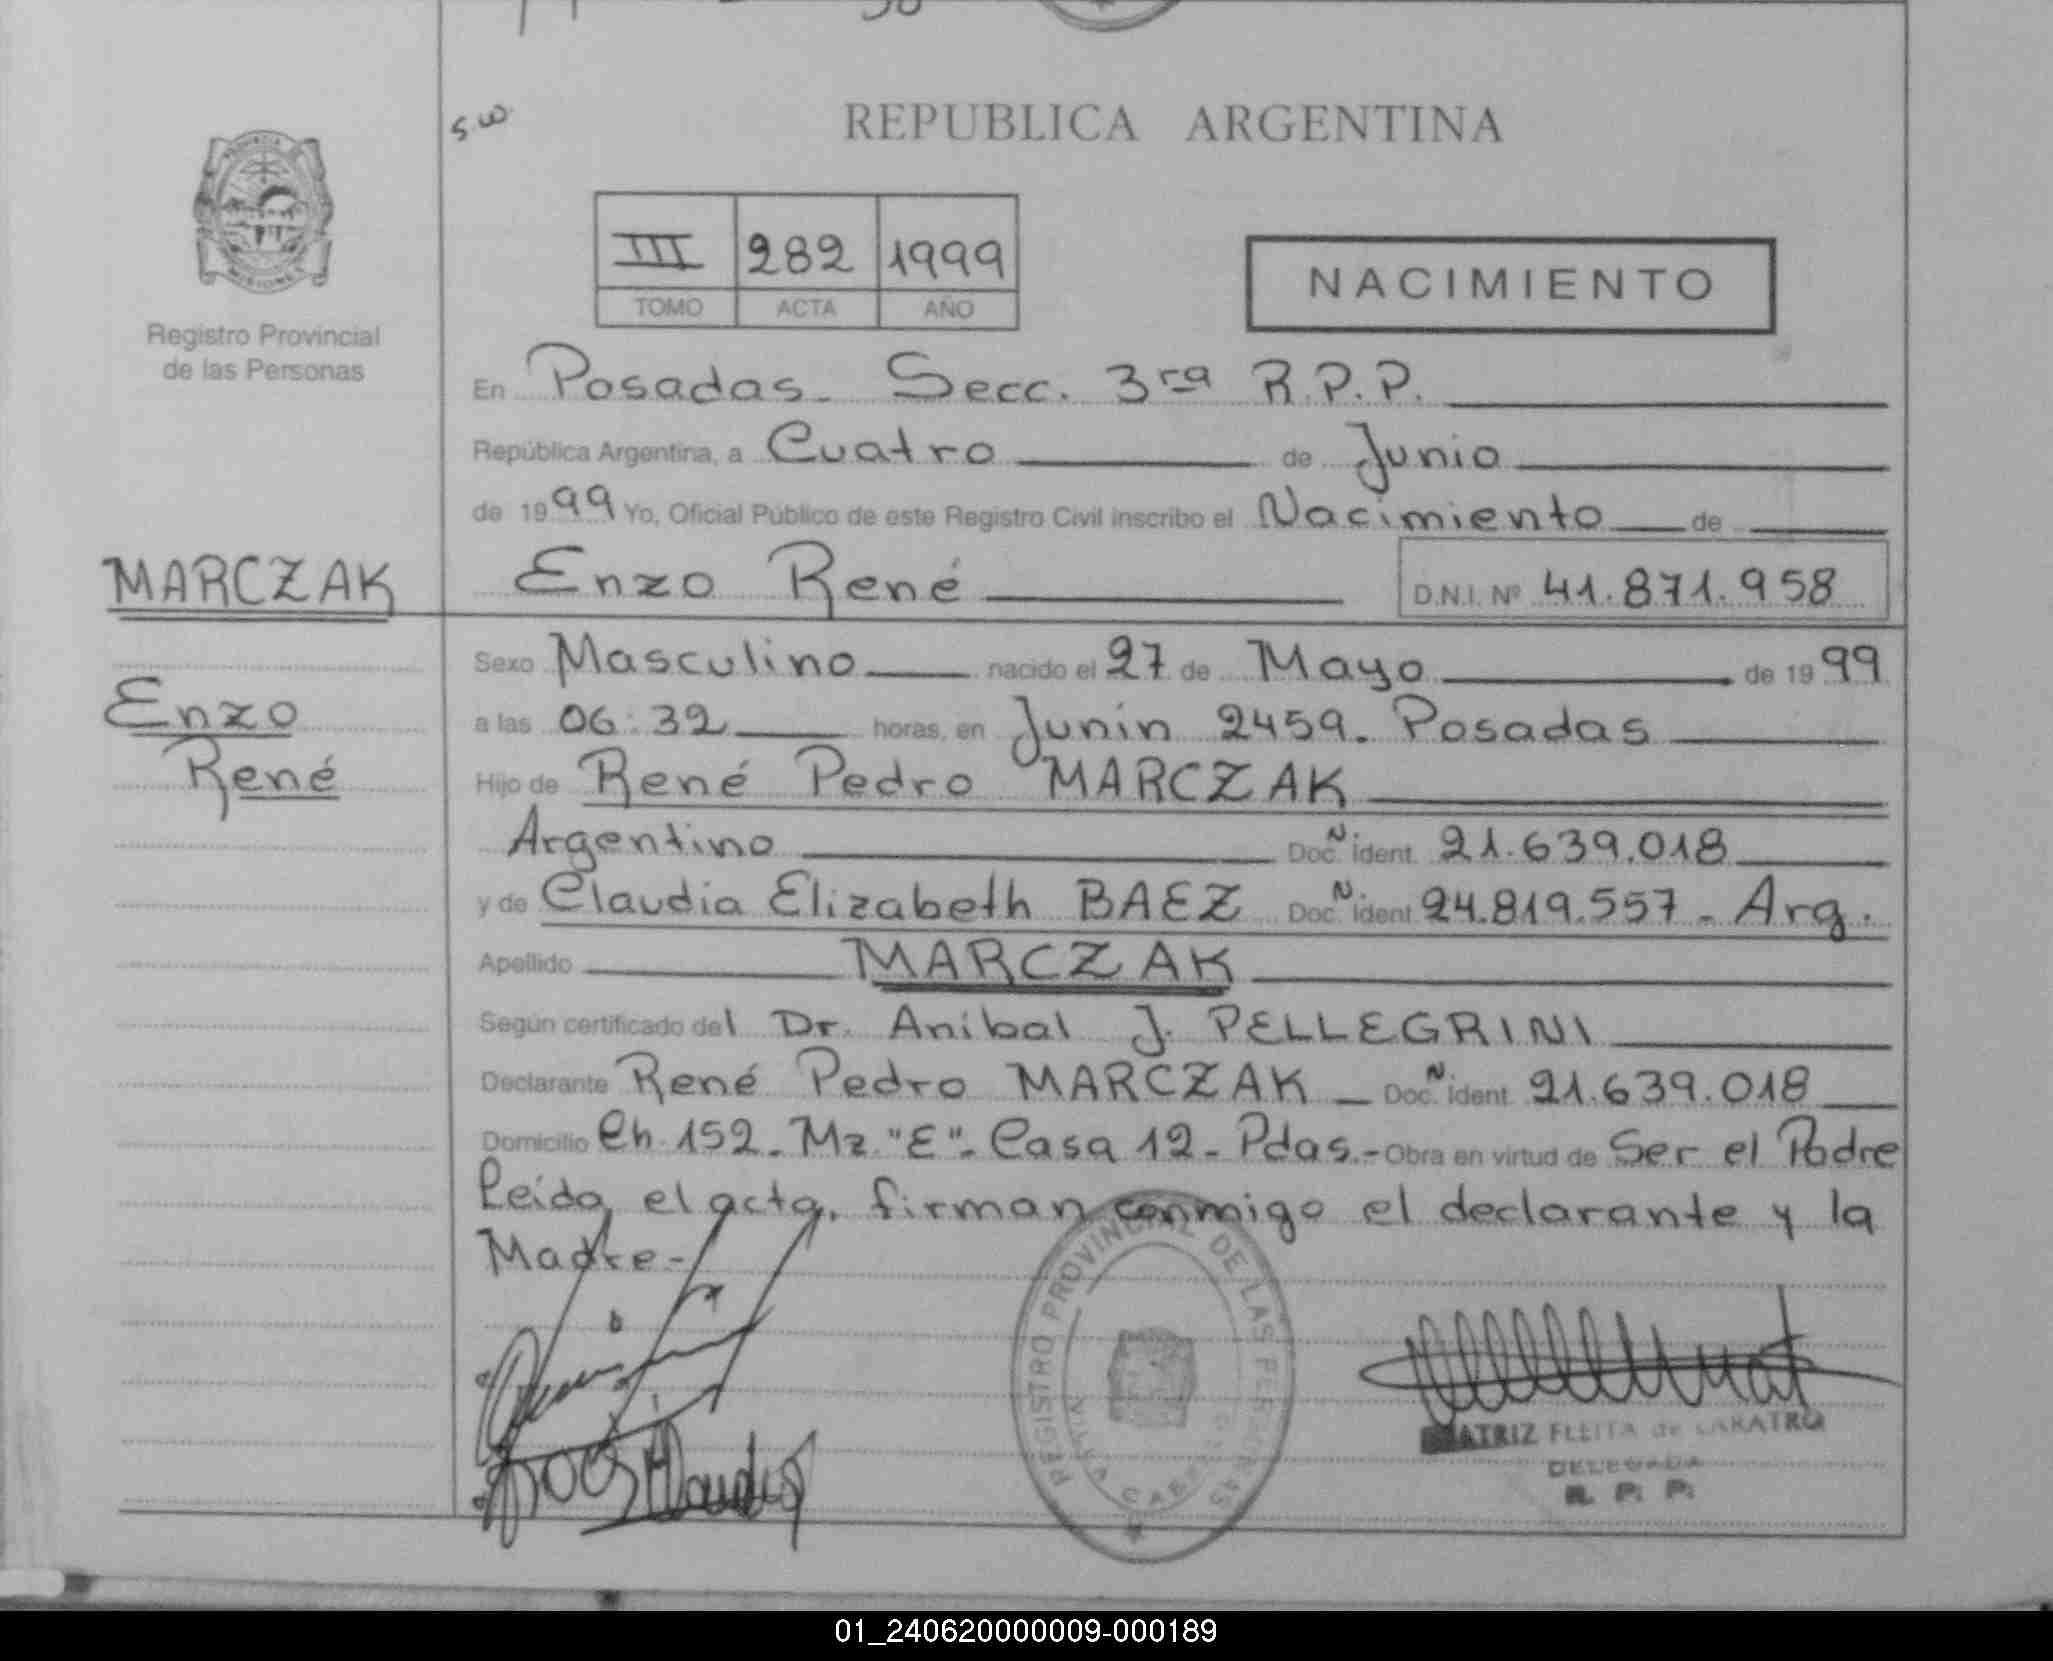 S.W.
REPUBLICA ARGENTINA
III 282 1999
TOMO ACTA AÑO
NACIMIENTO
Registro Provincial
de las Personas
En Posadas. Secc. 3ra R.P.P.
República Argentina, a Cuatro de Junio
de 1999 Yo, Oficial Público de este Registro Civil inscribo el Nacimiento de
MARCZAK
Enzo René D.N.I. Nº 41.871.958
Sexo Masculino nacido el 27 de Mayo de 1999
Enzo
a las 06:32 horas, en Junín 2459. Posadas
René
Hijo de René Pedro MARCZAK
Argentino Doc. N. Ident. 21.639.018
y de Claudia Elizabeth BAEZ Doc. N. Ident. 24.819.557 - Arg.
Apellido MARCZAK
Según certificado del Dr. Aníbal J. PELLEGRINI
Declarante René Pedro MARCZAK - Doc. N. Ident. 21.639.018
Domicilio Ch. 152. Mz "E". Casa 12 - Pdas.- Obra en virtud de Ser el Padre
Leída el acta, firman conmigo el declarante y la
Madre.-
REGISTRO PROVINCIAL DE LAS PERSONAS
DELEGADA
R. P. P.
01_240620000009-000189